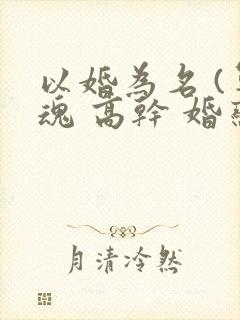 以婚為名(
魂 高幹 婚
月清冷然